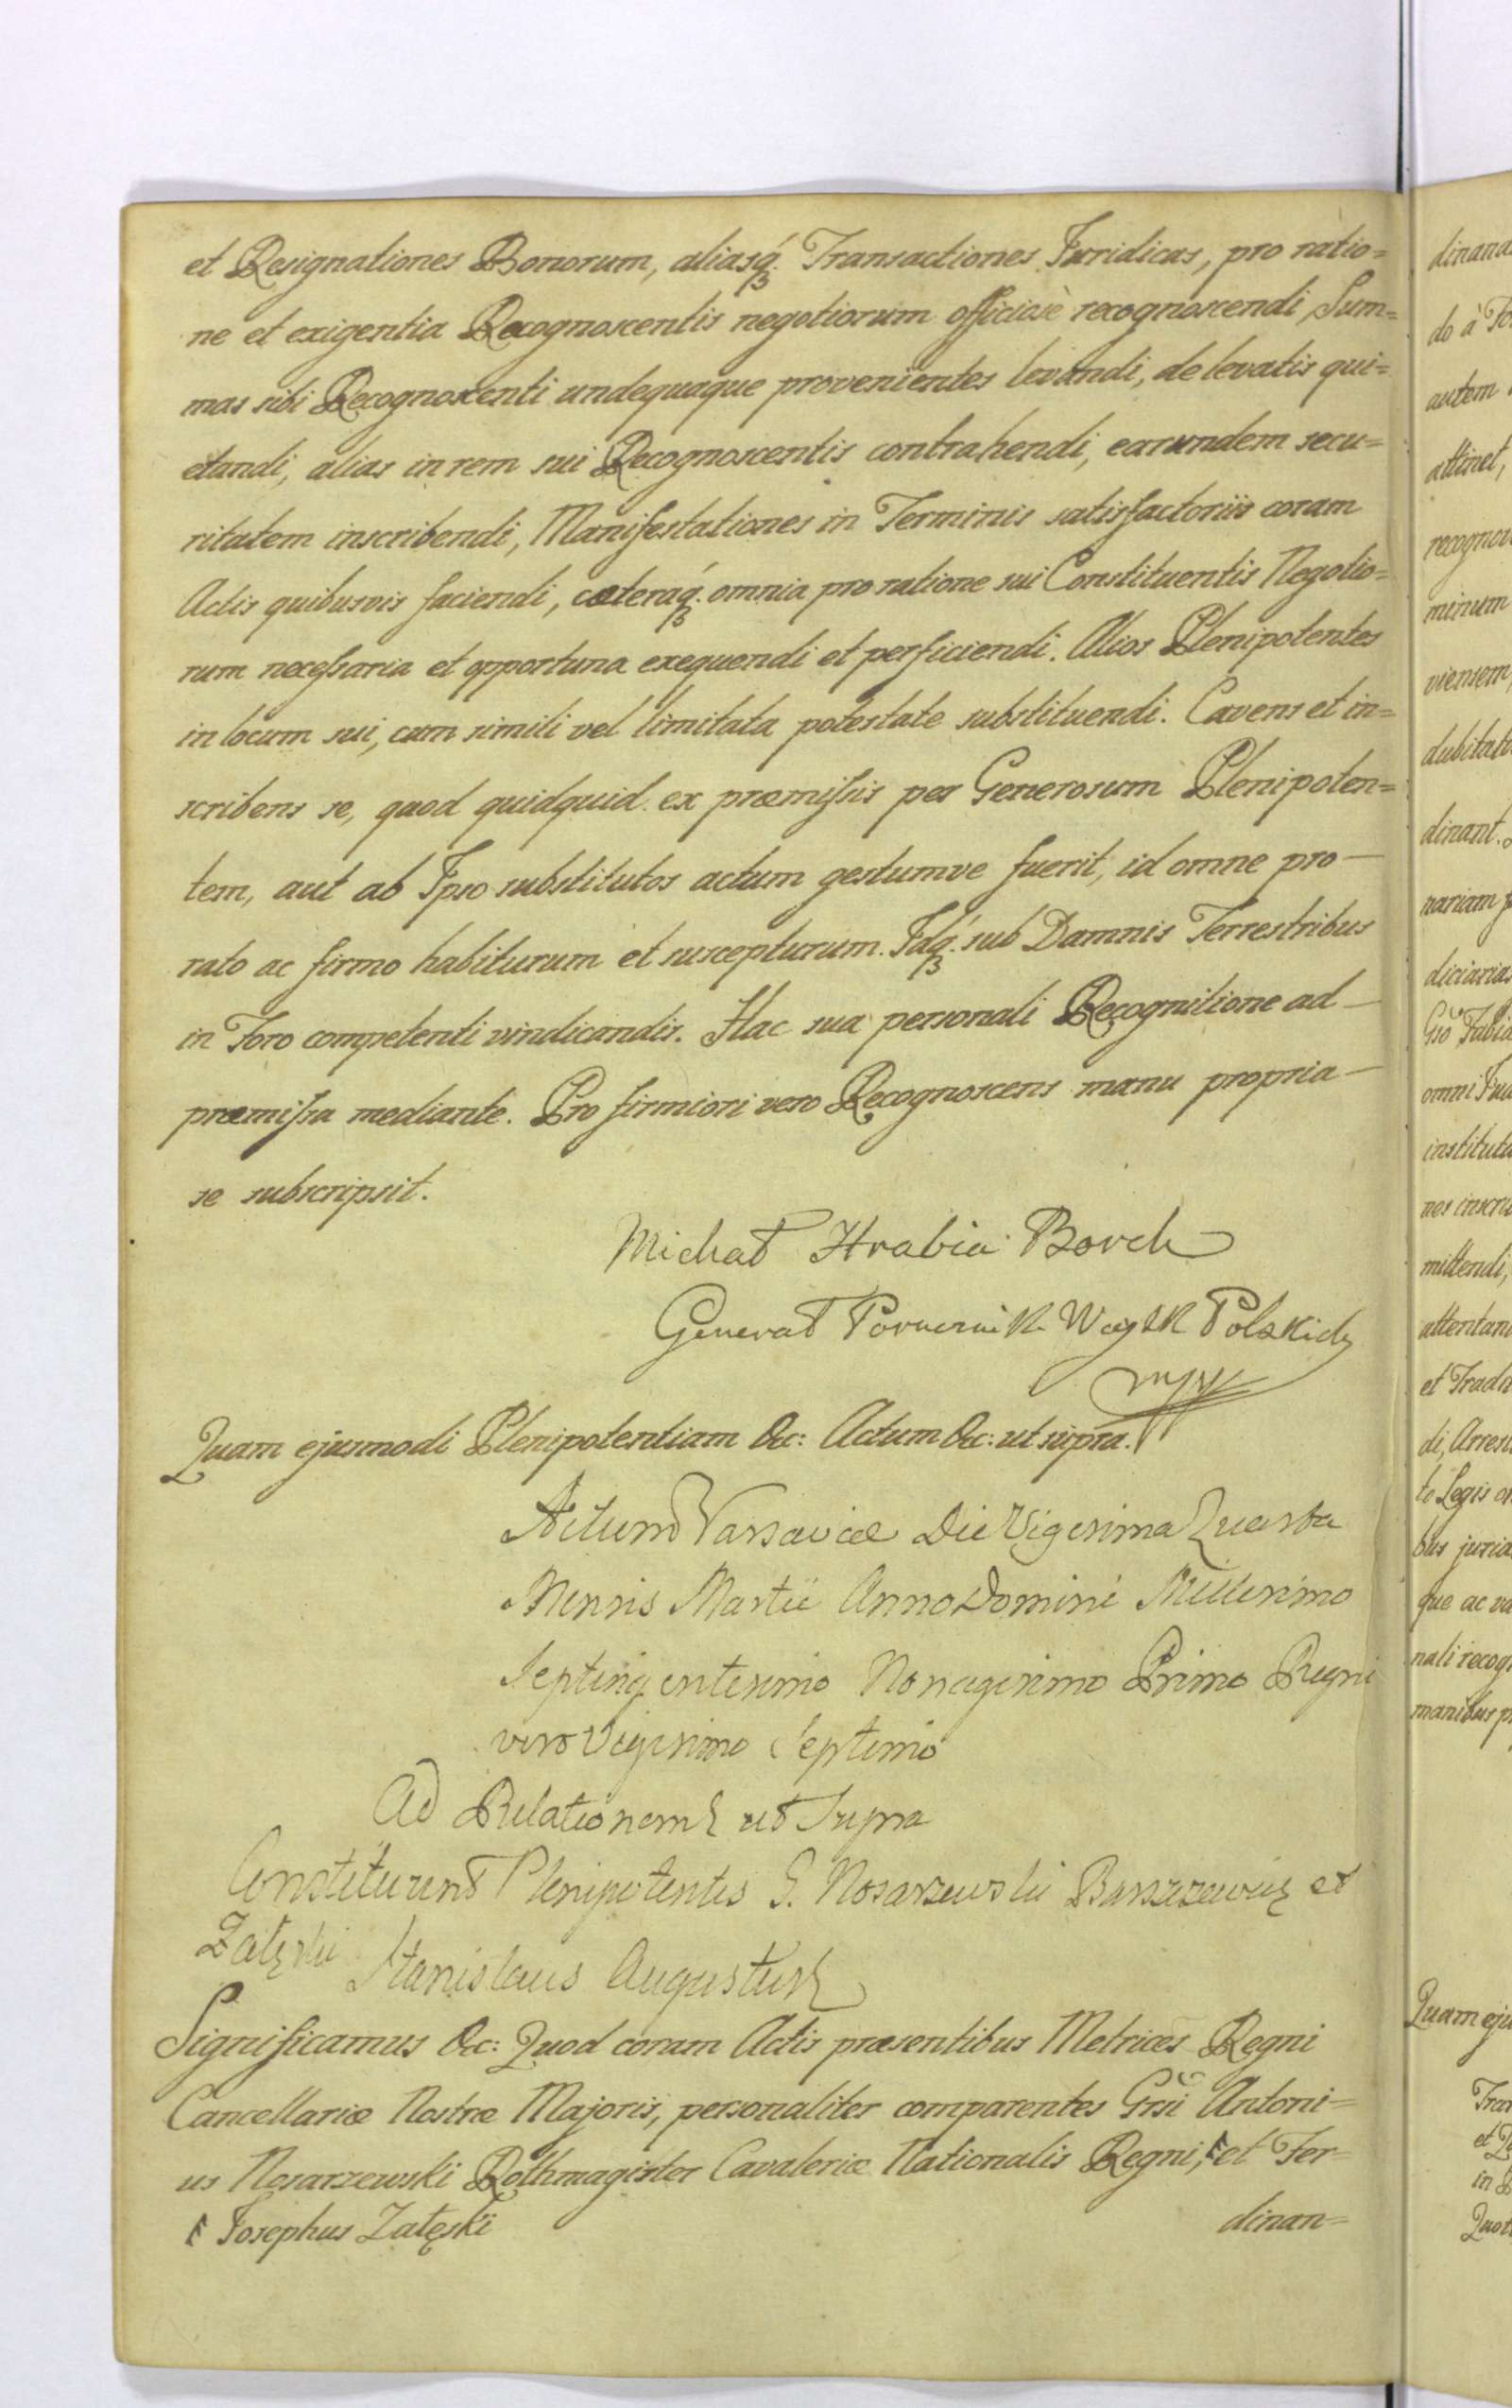 et Resignationes Bonorum, aliasq́ꝫ Transactiones Juridicas, pro ratio=
ne et exigentia Recognoscentis negotiorum officiosè recognoscendi, Sum=
mas sibi Recognoscenti undequaque provenientes levandi, de levatis qui=
etandi, alias in rem sui Recognoscentis contrahendi, earundem secu=
ritatem inscribendi, Manifestationes in Terminis satisfactoriis coram
Actis quibusvis faciendi, cæteraq́ꝫ omnia pro ratione sui Constituentis Negotio=
rum necessaria et opportuna exequendi et perficiendi. Alios Plenipotentes
in locum sui, cum simili vel limitata potestate substituendi. Cavens et in=
scribens se, quod quidquid ex præmissis per Generosum Plenipoten=
tem, aut ab Ipso substitutos actum gestumve fuerit, id omne pro—
rato ac firmo habiturum et suscepturum. Idq́ꝫ sub Damnis Terrestribus
in Foro competenti vindicandis. Hac sua personali Recognitione ad—
præmissa mediante. Pro firmiori vero Recognoscens manu propria—
se subscripsit.
Michał Hrabia Borch
Generał Porucznik Woysk Polskich
mpp
Quam ejusmodi Plenipotentiam &c: Actum &c: ut supra.
Actum Varsaviæ Die Vigesima Quarta
Mensis Martii Anno Domini Millesimo
Septingentesimo Nonagesimo Primo Regni
vero Vigesimo Septimo
Ad Relationem ut Supra
Constituunt Plenipotentes G. Nosarzewski Banszewicz et
Załęski Stanislaus Augustus
Significamus &c: Quod coram Actis præsentibus Metrices Regni
Cancellariæ Nostræ Majoris, personaliter comparentes Grsi Antoni=
us Nosarzewski Rothmagister Cavaleriæ Nationalis Regni, et Fer-
Josephus Załęski
dinan=
dinand
do à Fo
autem
attinet,
recognov
minum
viensem,
dubitat
dinant.
nariam
diciarias
Gsō Fabia
omni
institut
nos inscri
mittendi,
attentan
et Tradi
di, Arres
to Legis
bus juri
que ac va
nali recog
manibus p
Quam eju
Tran
et
in
Quot